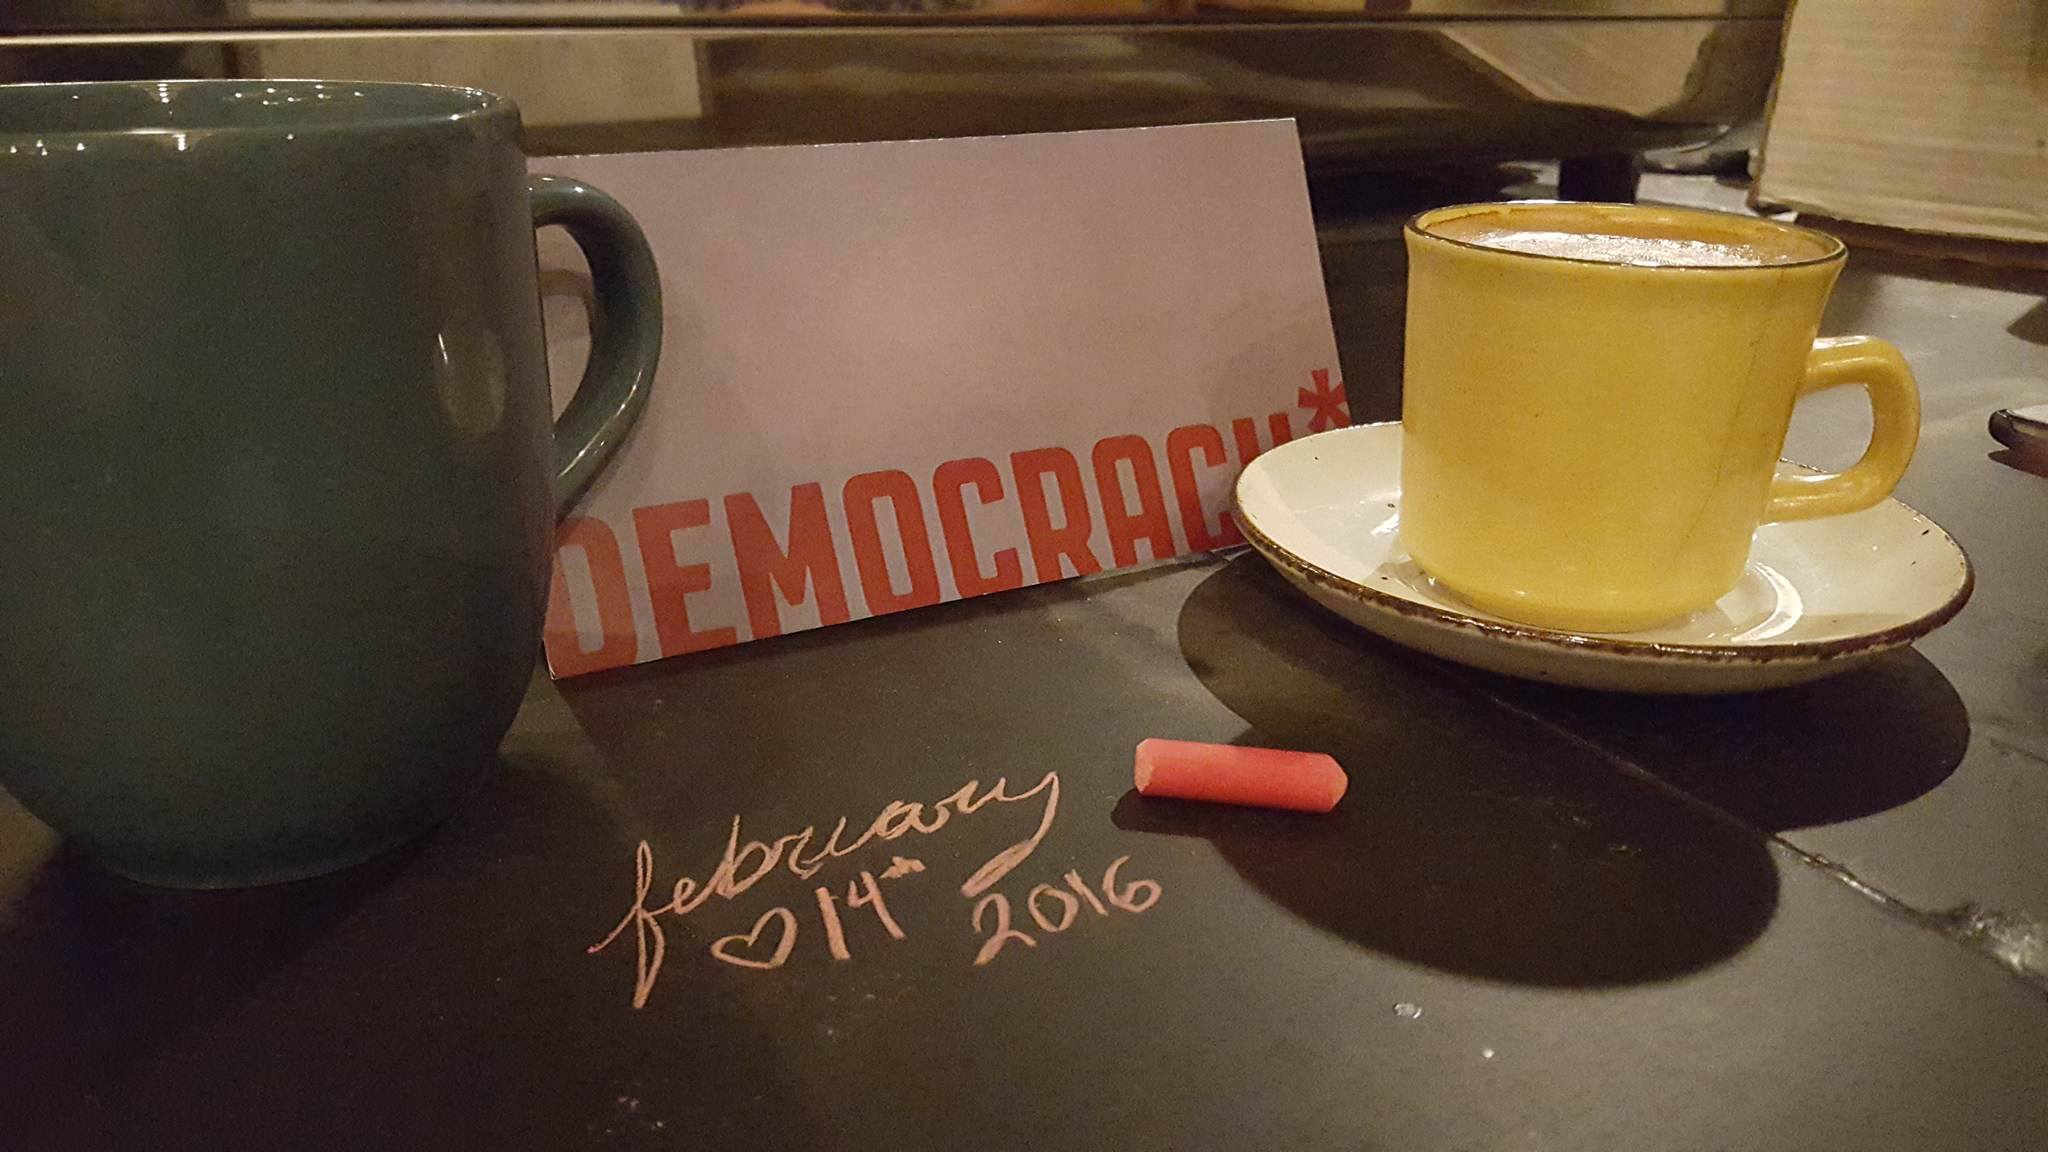 DEMOCRACY*
february
♡ 14th 2016